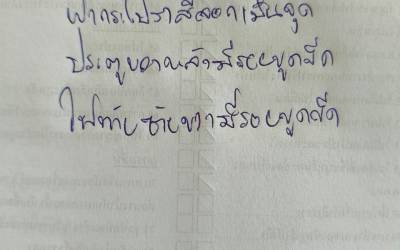 ฝากระโปรงสีลอกเป็นจุด
ประตูบานหลังมีรอยขูดขีด
ไฟท้ายซ้ายขวามีรอยขูดขีด